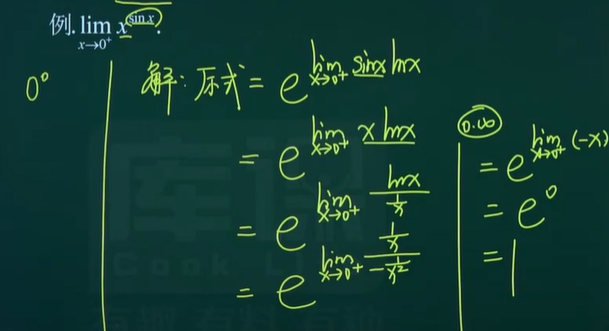 例. lim_{x→0⁺} x^{sin x}.
0⁰
解: 原式 = e^{lim_{x→0⁺} sinx lnx}
= e^{lim_{x→0⁺} x lnx}
= e^{lim_{x→0⁺} \frac{lnx}{\frac{1}{x}}}
= e^{lim_{x→0⁺} \frac{\frac{1}{x}}{-\frac{1}{x²}}}
0·∞
= e^{lim_{x→0⁺} (-x)}
= e⁰
= 1
库课
Cook